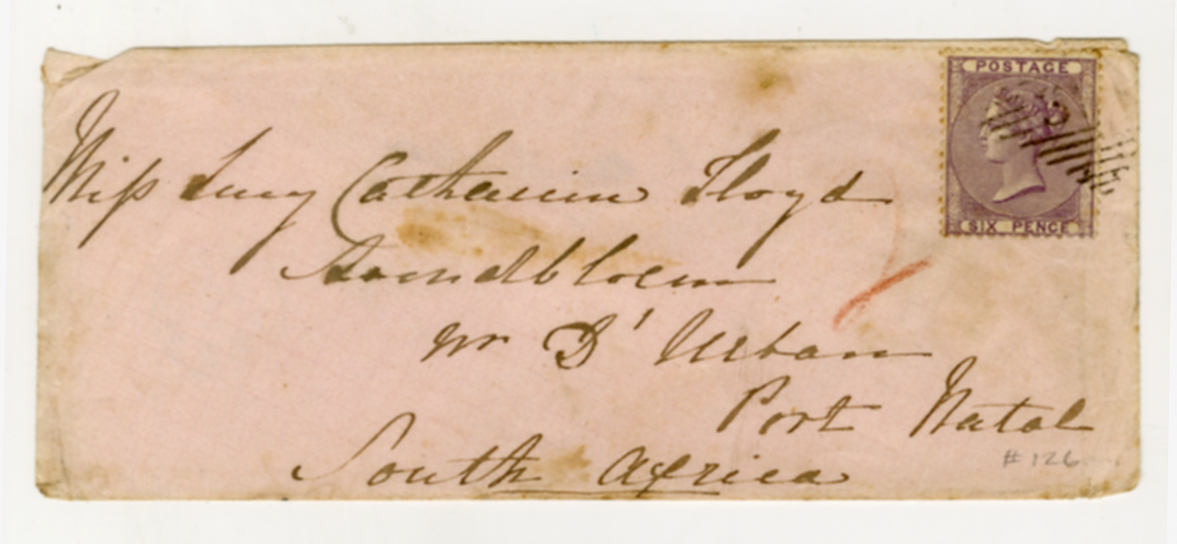 POSTAGE
SIX PENCE
Miss Lucy Catherine Lloyd
nr D'Urban
Port Natal
South Africa
# 126